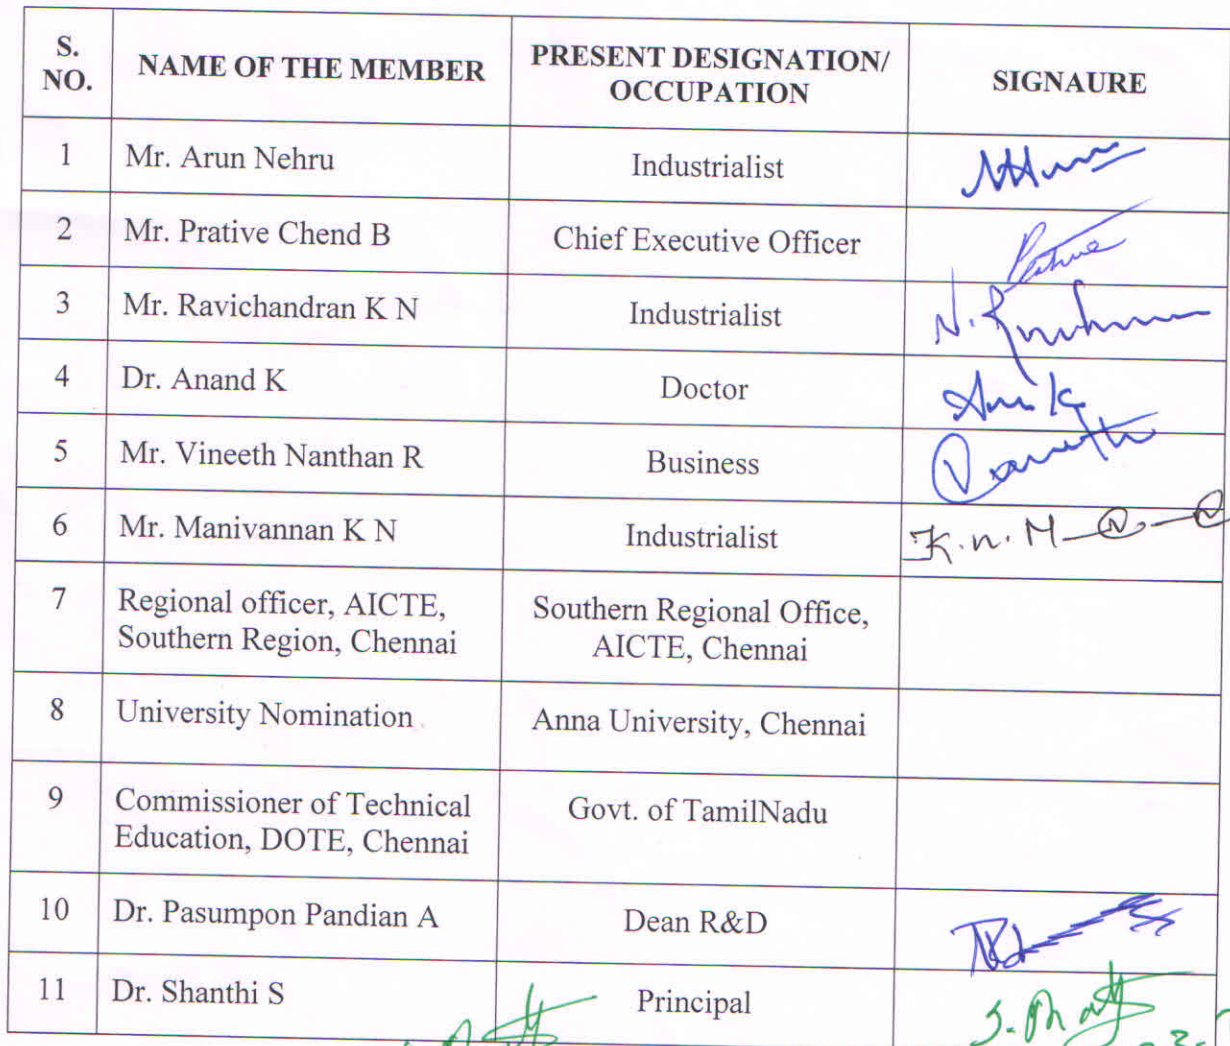 S. NO. NAME OF THE MEMBER PRESENT DESIGNATION/ OCCUPATION SIGNAURE
1 Mr. Arun Nehru Industrialist
2 Mr. Prative Chend B Chief Executive Officer
3 Mr. Ravichandran K N Industrialist
4 Dr. Anand K Doctor
5 Mr. Vineeth Nanthan R Business
6 Mr. Manivannan K N Industrialist K.n.M
7 Regional officer, AICTE, Southern Regional Office,
Southern Region, Chennai AICTE, Chennai
8 University Nomination Anna University, Chennai
9 Commissioner of Technical Govt. of TamilNadu
Education, DOTE, Chennai
10 Dr. Pasumpon Pandian A Dean R&D
11 Dr. Shanthi S Principal